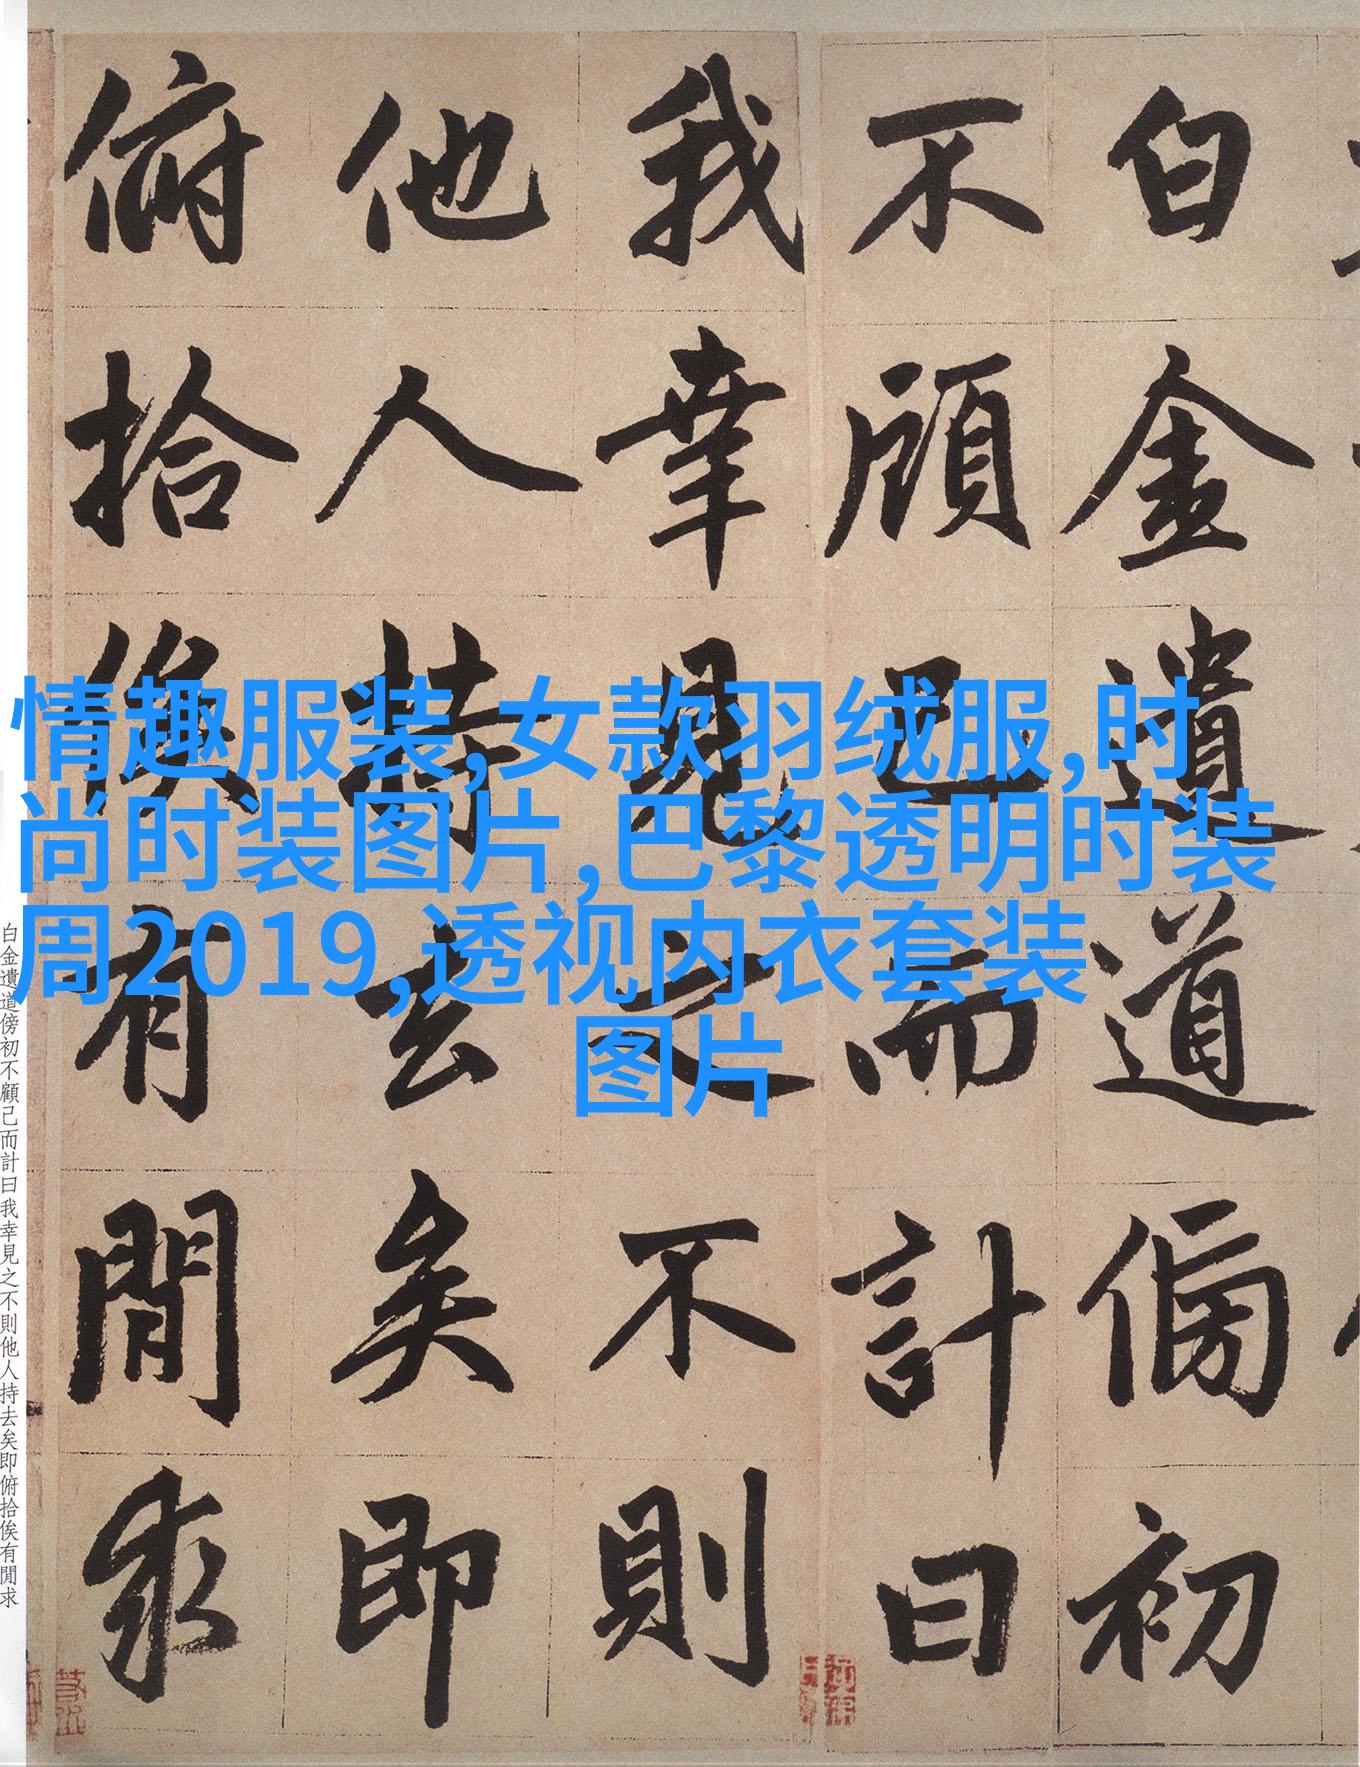 情趣服装,女款羽绒服,时
尚时装图片,巴黎透明时装
周2019,透视内衣套装
图片
白金遺道傍初
不顧己而計曰
我幸見之不則
他人持去矣即
俯拾俟有閒求
白金遺道傍初不顧己而計曰我幸見之不則他人持去矣即俯拾俟有閒求